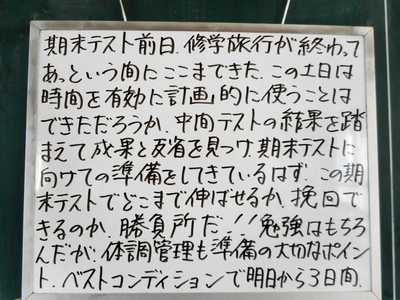 期末テスト前日.修学旅行が終わって
あっという間にここまできた.この土日は
時間を有効に計画的に使うことは
できただろうか.中間テストの結果を踏
まえて成果と反省を見つけ.期末テストに
向けての準備をしてきているはず.この期
末テストでどこまで伸ばせるか,挽回で
きるのか.勝負所だ!!勉強はもちろ
んだが.体調管理も準備の大切なポイン
ト.ベストコンディションで明日から3日間.